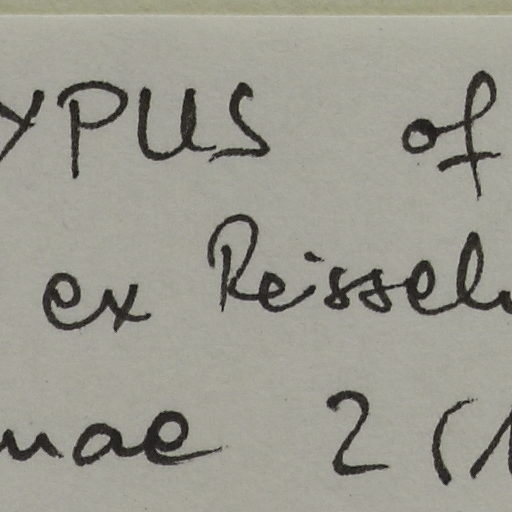 YPUS of
ex Reissek
mae 2 (1